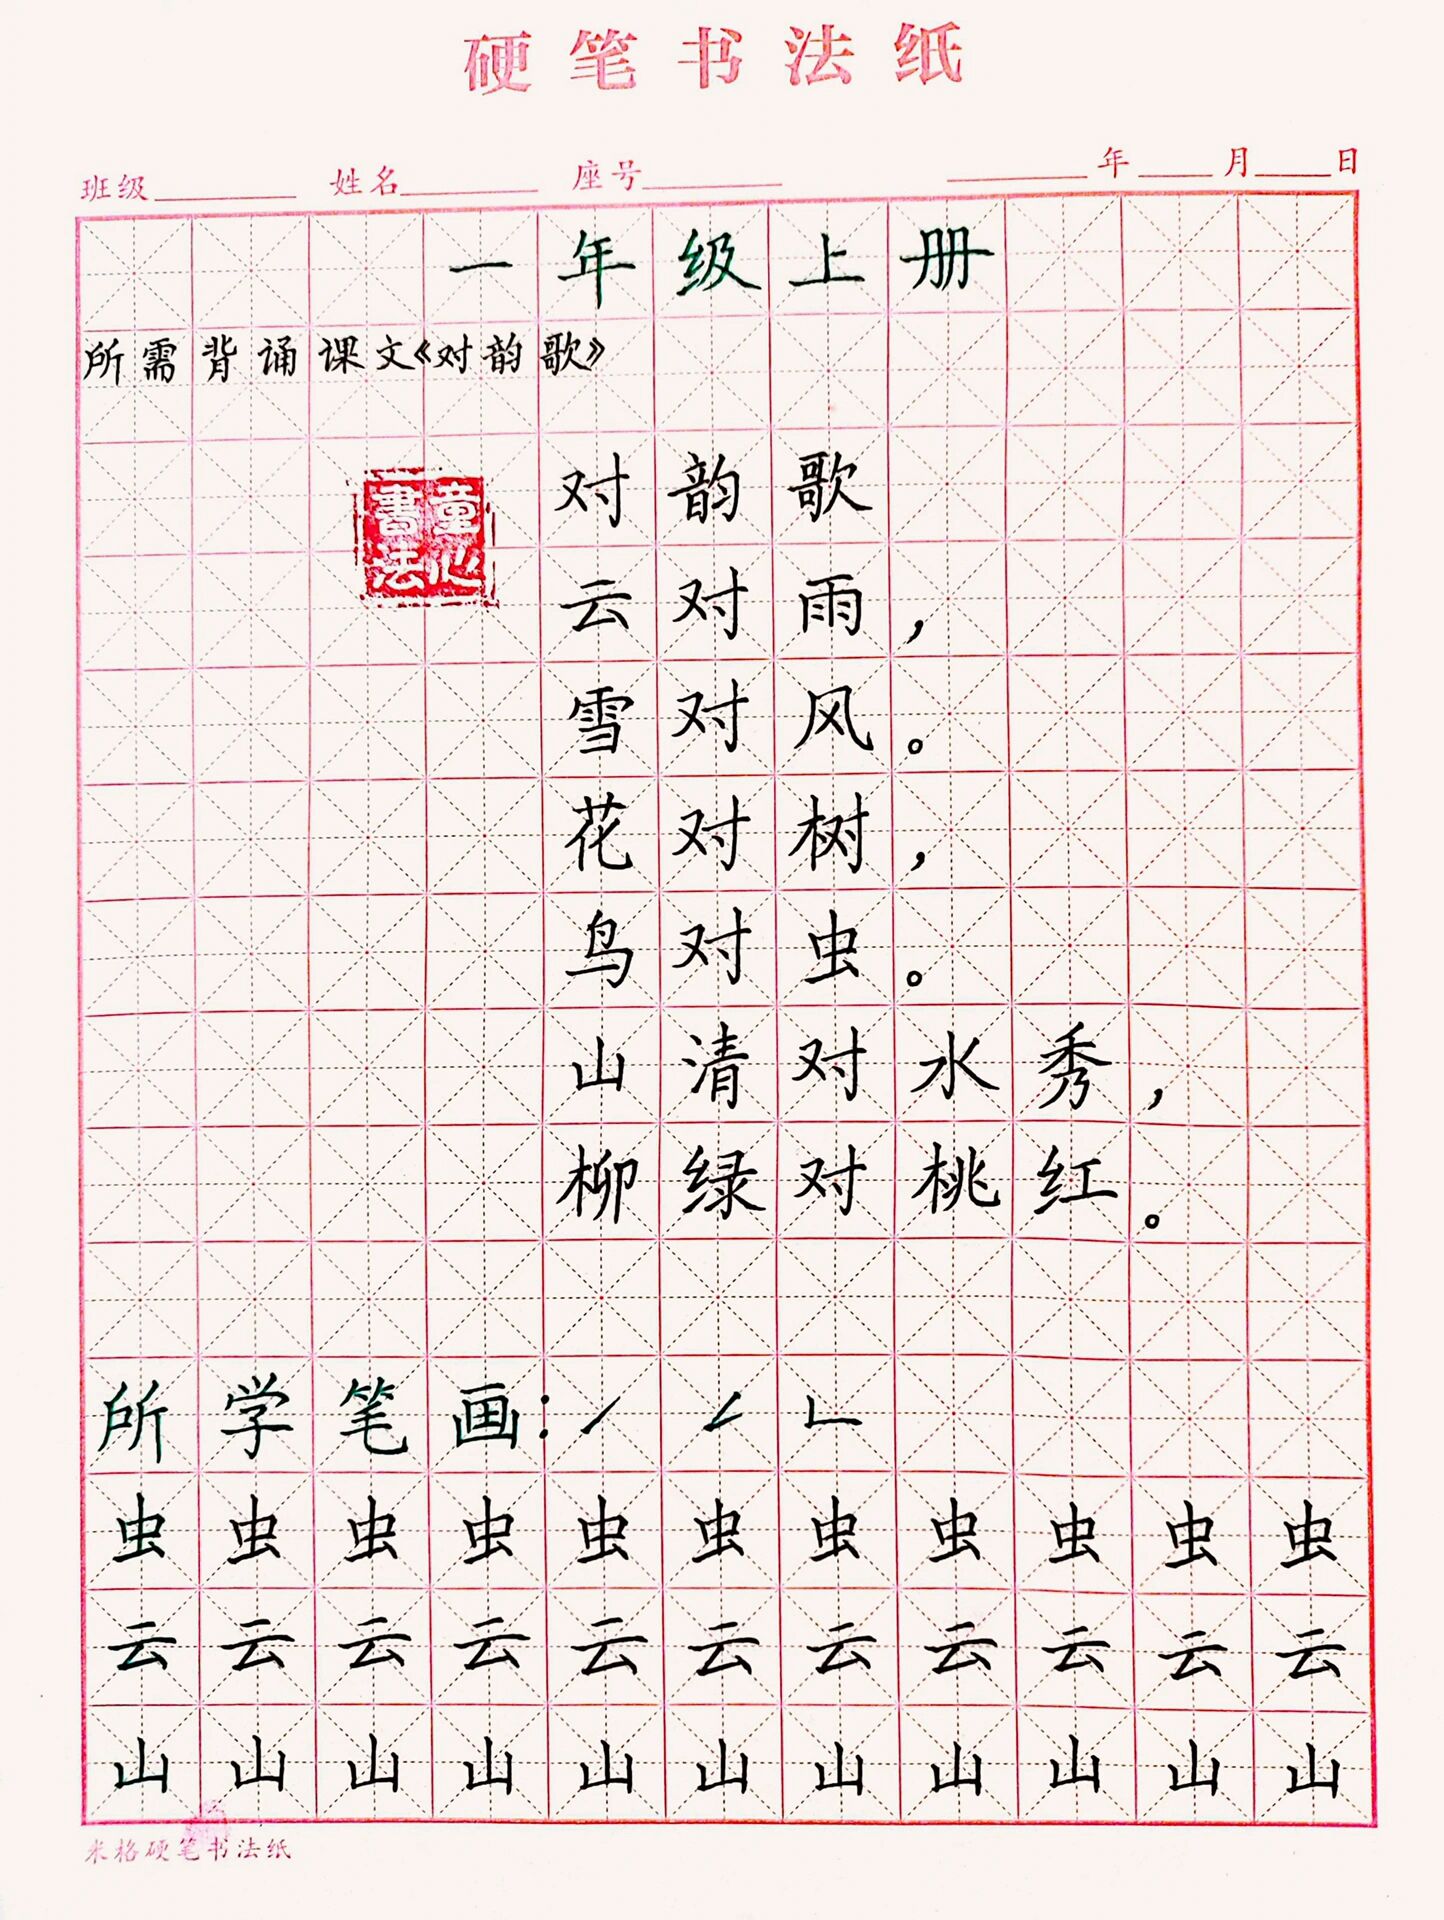 硬笔书法纸
班级 姓名 座号 年 月 日
一年级上册
所需背诵课文《对韵歌》
对韵歌
童心書法
云对雨，
雪对风。
花对树，
鸟对虫。
山清对水秀，
柳绿对桃红。
所学笔画：㇀ ㇜ ㇗
虫虫虫虫虫虫虫虫虫虫虫
云云云云云云云云云云云
山山山山山山山山山山山
米格硬笔书法纸